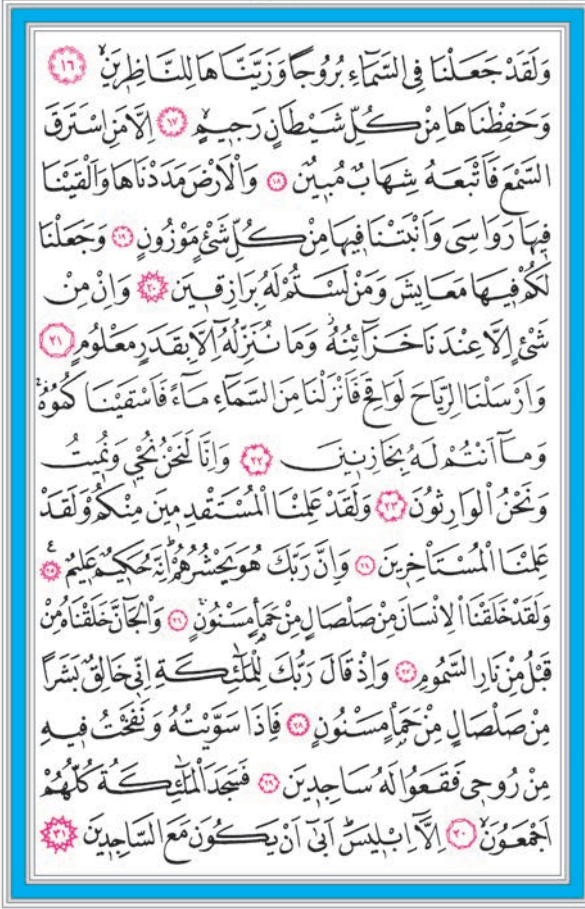 وَلَقَدْ جَعَلْنَا فِي السَّمَٓاءِ بُرُوجًا وَزَيَّنَّاهَا لِلنَّاظِر۪ينَۙ ﴿١٦﴾
وَحَفِظْنَاهَا مِنْ كُلِّ شَيْطَانٍ رَج۪يمٍۙ ﴿١٧﴾ اِلَّا مَنِ اسْتَرَقَ
السَّمْعَ فَاَتْبَعَهُ شِهَابٌ مُب۪ينٌ ﴿١٨﴾ وَالْاَرْضَ مَدَدْنَاهَا وَاَلْقَيْنَا
ف۪يهَا رَوَاسِيَ وَاَنْبَتْنَا ف۪يهَا مِنْ كُلِّ شَيْءٍ مَوْزُونٍ ﴿١٩﴾ وَجَعَلْنَا
لَكُمْ ف۪يهَا مَعَايِشَ وَمَنْ لَسْتُمْ لَهُ بِرَازِق۪ينَ ﴿٢٠﴾ وَاِنْ مِنْ
شَيْءٍ اِلَّا عِنْدَنَا خَزَٓائِنُهُۘ وَمَا نُنَزِّلُهُٓ اِلَّا بِقَدَرٍ مَعْلُومٍ ﴿٢١﴾
وَاَرْسَلْنَا الرِّيَاحَ لَوَاقِحَ فَاَنْزَلْنَا مِنَ السَّمَٓاءِ مَٓاءً فَاَسْقَيْنَاكُمُوهُۚ
وَمَٓا اَنْتُمْ لَهُ بِخَازِن۪ينَ ﴿٢٢﴾ وَاِنَّا لَنَحْنُ نُحْي۪ وَنُم۪يتُ
وَنَحْنُ الْوَارِثُونَ ﴿٢٣﴾ وَلَقَدْ عَلِمْنَا الْمُسْتَقْدِم۪ينَ مِنْكُمْ وَلَقَدْ
عَلِمْنَا الْمُسْتَأْخِر۪ينَ ﴿٢٤﴾ وَاِنَّ رَبَّكَ هُوَ يَحْشُرُهُمْۜ اِنَّهُ حَك۪يمٌ عَل۪يمٌ۟ ﴿٢٥﴾
وَلَقَدْ خَلَقْنَا الْاِنْسَانَ مِنْ صَلْصَالٍ مِنْ حَمَأٍ مَسْنُونٍۚ ﴿٢٦﴾ وَالْجَٓانَّ خَلَقْنَاهُ مِنْ
قَبْلُ مِنْ نَارِ السَّمُومِ ﴿٢٧﴾ وَاِذْ قَالَ رَبُّكَ لِلْمَلٰٓئِكَةِ اِنّ۪ي خَالِقٌ بَشَرًا
مِنْ صَلْصَالٍ مِنْ حَمَأٍ مَسْنُونٍ ﴿٢٨﴾ فَاِذَا سَوَّيْتُهُ وَنَفَخْتُ ف۪يهِ
مِنْ رُوح۪ي فَقَعُوا لَهُ سَاجِد۪ينَ ﴿٢٩﴾ فَسَجَدَ الْمَلٰٓئِكَةُ كُلُّهُمْ
اَجْمَعُونَۙ ﴿٣٠﴾ اِلَّٓا اِبْل۪يسَۜ اَبٰٓى اَنْ يَكُونَ مَعَ السَّاجِد۪ينَ ﴿٣١﴾